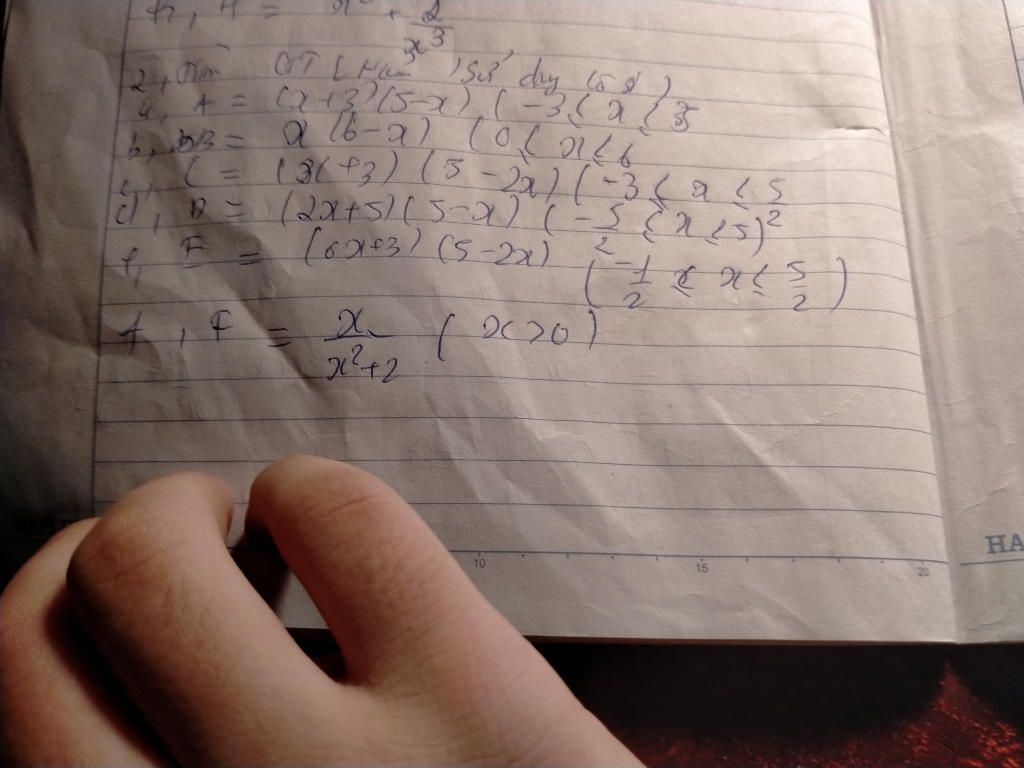 h, H = x² + 2/x³
2, Tìm GTLN
a, A = (x+3)(5-x) (-3 ≤ x ≤ 5
b, B = x(6-x) (0 ≤ x ≤ 6
c, C = (x+3)(5-2x) (-3 ≤ x ≤ 5/2
d, D = (2x+5)(5-x) (-5/2 ≤ x ≤ 5)
f, F = (6x+3)(5-2x) (-1/2 ≤ x ≤ 5/2)
f, F = x/x²+2 (x>0)
10 15 20
HA